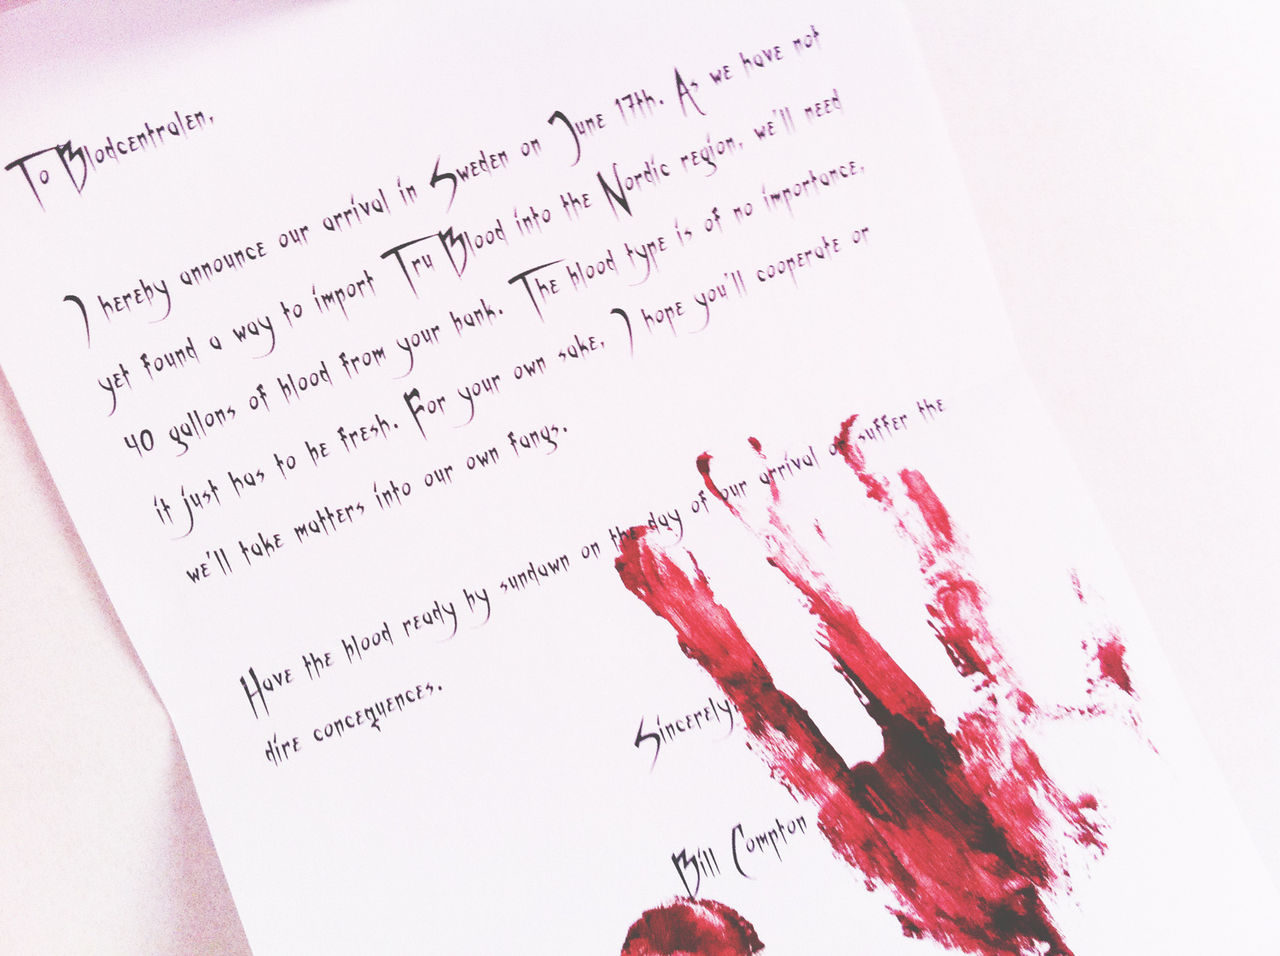 To Blodcentralen,
I hereby announce our arrival in Sweden on June 17th. As we have not
yet found a way to import Tru Blood into the Nordic region, we'll need
40 gallons of blood from your bank. The blood type is of no importance,
it just has to be fresh. For your own sake, I hope you'll cooperate or
we'll take matters into our own fangs.
Have the blood ready by sundown on the day of our arrival or suffer the
dire concequences.
Sincerely,
Bill Compton